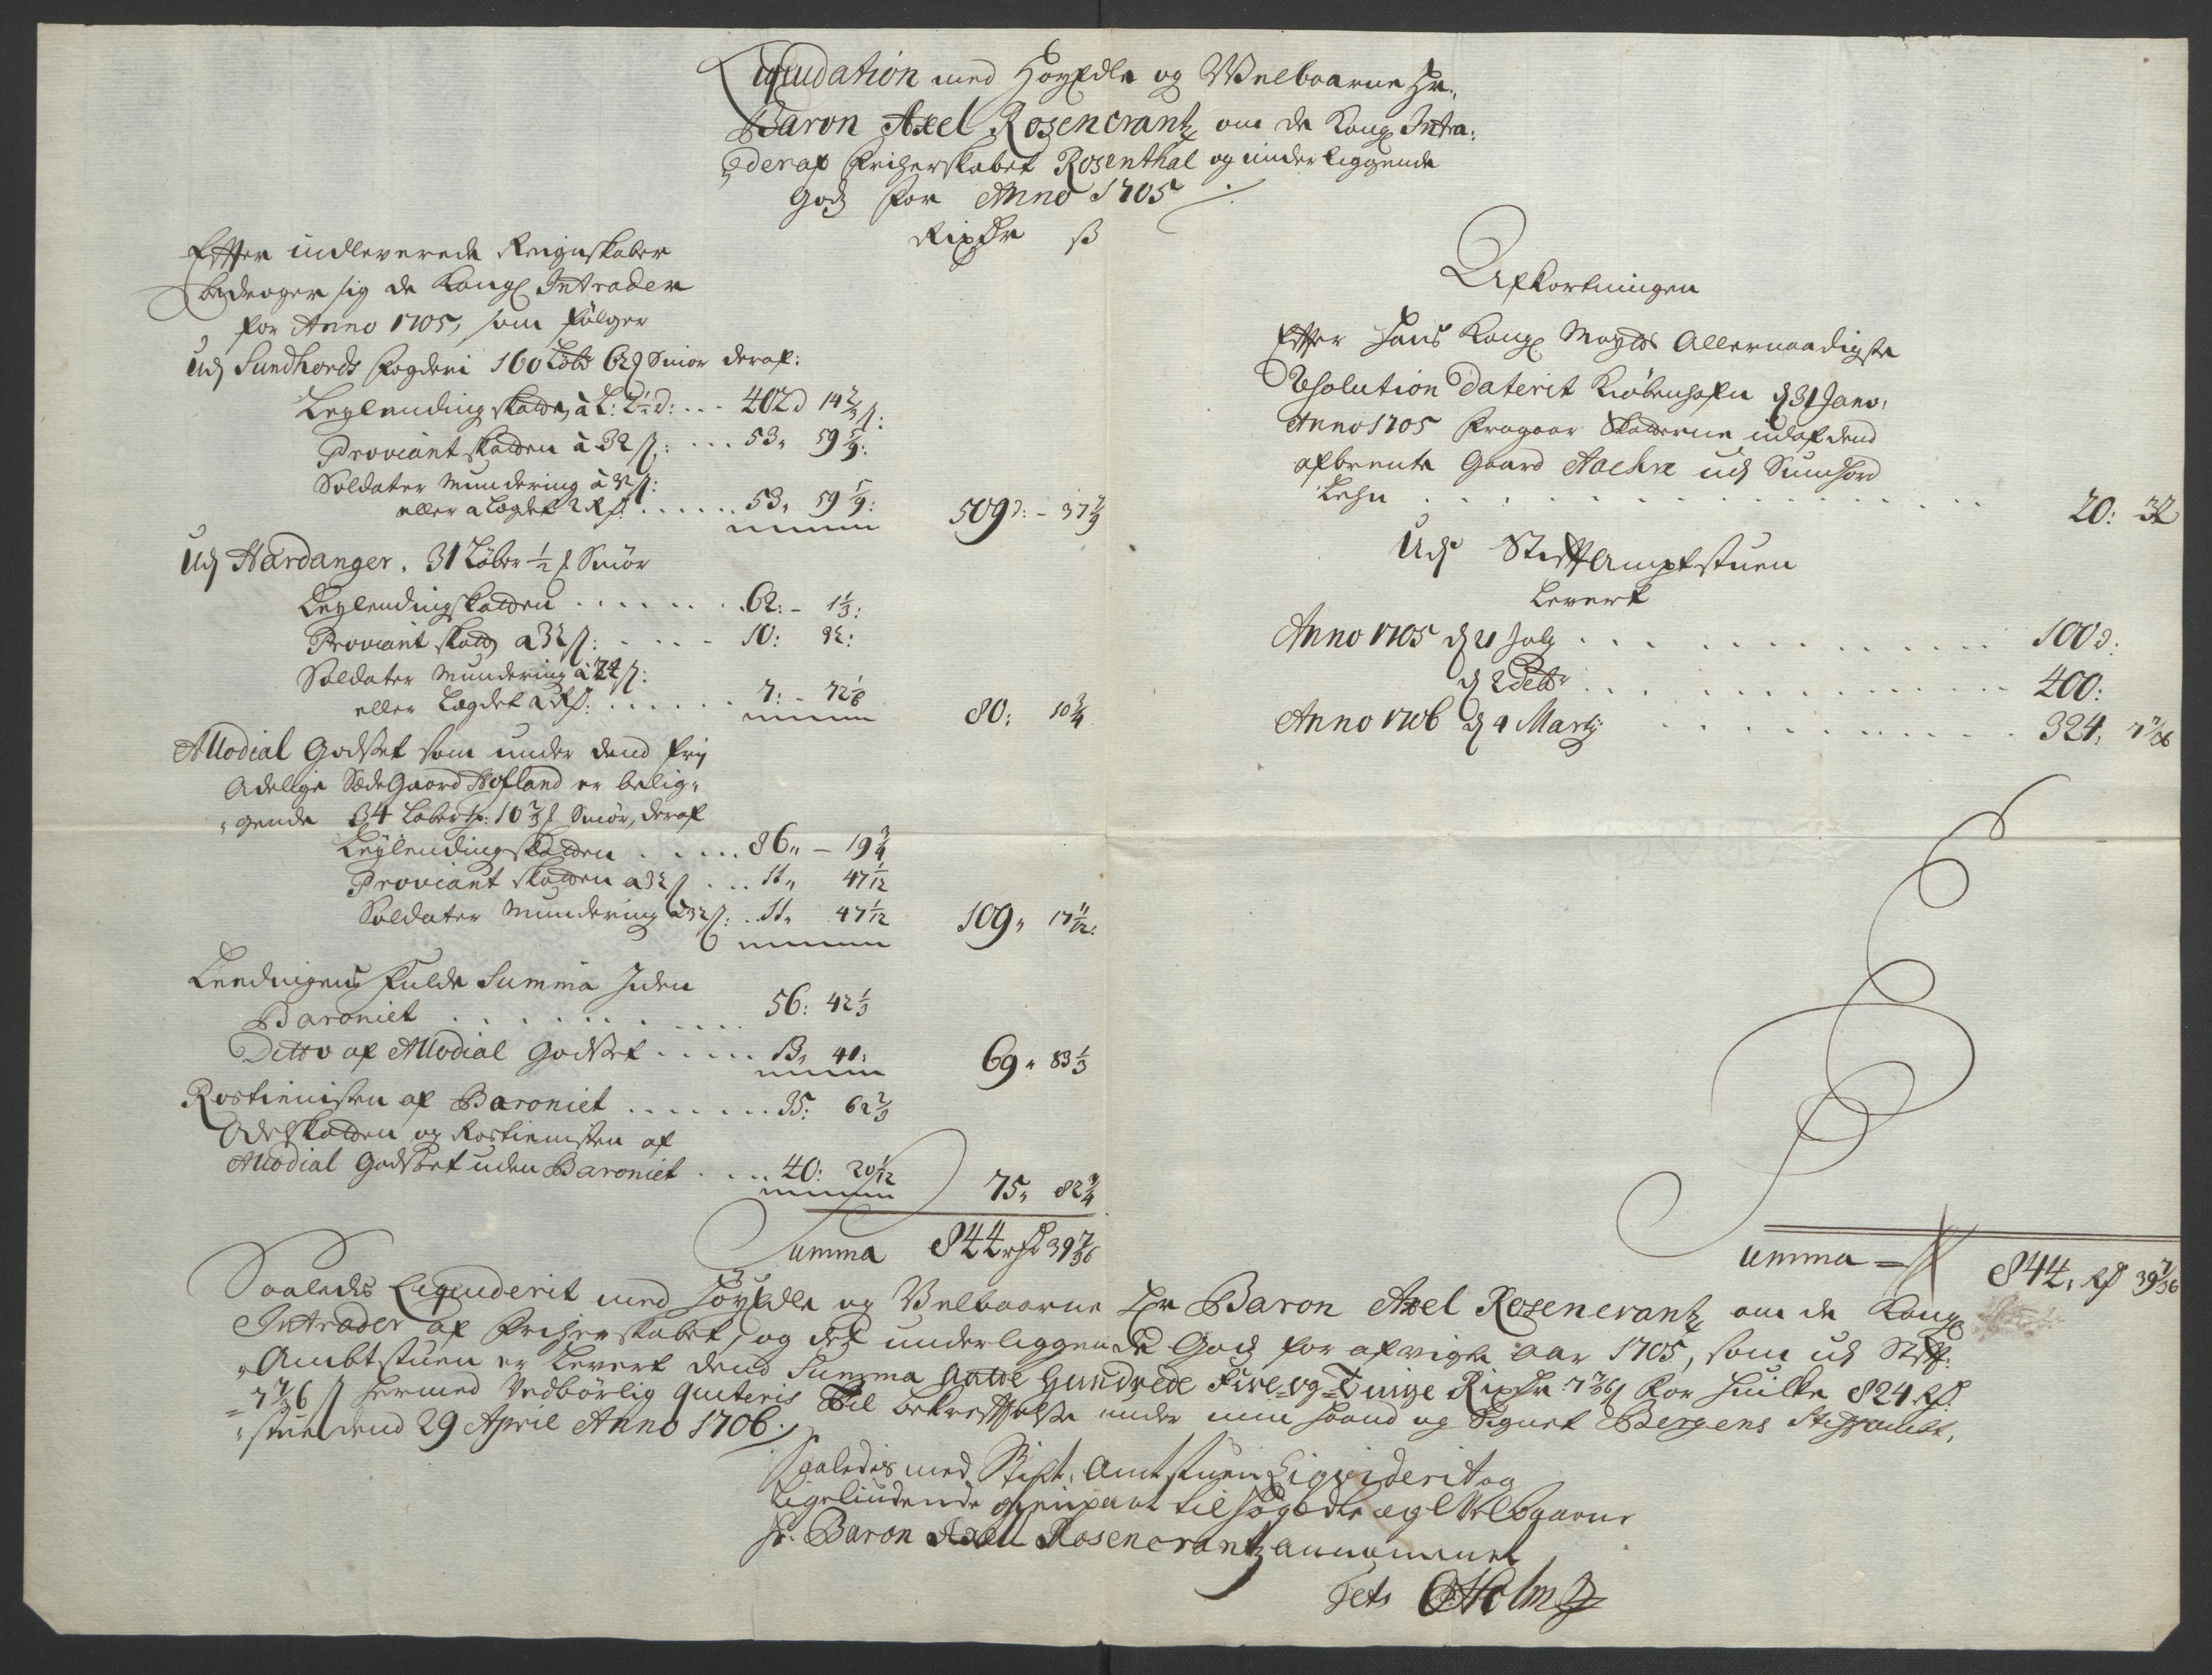 Liquidation med HøyEdle og Welbaarne Hr.
Baron Axel Rosencrantz, om de Kong: Intra-
der af Friherskabet Rosenthal og underliggende
Gods for Anno 1705
RixDr ß
Efter indleverede Reignskaber
bedrager sig de Kongl Intrader
for Anno 1705, som følger
Udj Sundhords fogderi 160 Løbr 6 Smør deraf:
Leylending skatt, à L: 2½ d: ... 402 d 14 2/3 ß:
Proviant skatten à 32 ß: ... 53, 59 5/9:
Soldater Mundering à 32 ß:
eller a Lægdet 2 Rd ...... 53, 59 5/9: 509 d: - 37 7/9
Udj Hardanger. 31 Løber ½ Smør
Leylendingskatten ....... 62: - 1 1/3:
Proviant skatt à 32 ß: .... 10: 32:
Soldater Mundering à 24 ß:
eller Lægdet 2 Rd: ...... 7: - 72 80: 10 3/4
Allodial Godset som under dend frj
Adelige SædeGaard Hofland er belig-
gende 34 Løber 10 2/3 Smør, deraf
Leylendingskatten ..... 86,, - 19 3/4
Proviant skatten a 32 ß ... 11,, 47 1/12
Soldater Mundering à 32 ß: .. 11, 47 1/12 109,, 17 11/12:
Leedingens fulde Summa
Baroniet ........... 56: 42 1/3
Ditto af Allodial Godset ..... 13, 41: 69 ,, 83 1/3
Rostienisten af Baroniet ....... 35: 62 2/3
Odelskatten og Rostienisten af
Allodial Godset uden Baroniet .... 40: 20 1/12 75,, 82 3/4
Summa 844 rd 39 7/36
Afkortningen
Efter Hans Kongl Mayts Allernaadigste
Resolution Daterit Kiøbenhafn d 31 Janv:
Anno 1705 fragaar Skatterne udaf dend
afbrente Gaard udj Sundhord
Lehn ............ 20: 32
Udj StiftAmptstuen
Levert
Anno 1705 d 21 July ............ 100 d:
d 2 ............ 400:
Anno 1706 d 4 Martj .......... 324, 7 7/36
Summa = 844, Rd 39 7/36
Saaledes Liquiderit med HøyEdle og Velbaarne Hr Baron Axel Rosencrantz, om de Kong
Intrader af Friherskabet, og det underliggende Gods for afvigte aar 1705, som udj Stift:
Ambtstuen er Levert dend Summa Aatte Hundrede Fire og Tiuge RixDr 7 7/36 ß for huilke 824 Rd:
7 7/36 ß hermed Vedbørlig qviteris Til bekreftelse under min haand og Signet Bergens Stiftambt-
stue dend 29 April Anno 1706.
Saaledes med Stift: Amtstuen Liqvideritog
Ligeliudende gienpart til HøgEdle og Velbaarne
Hr. Baron Axell Rosencrantz annammet
Test OHolm